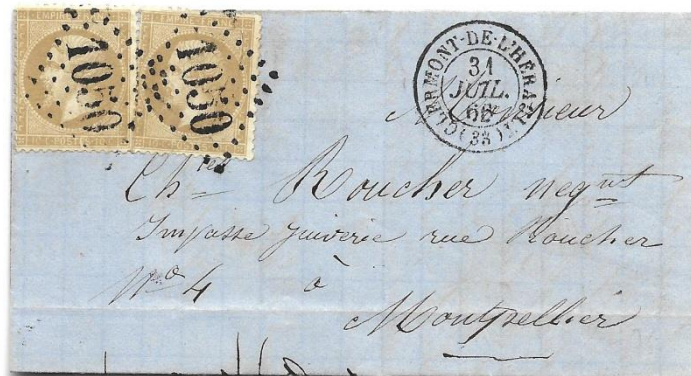 EMPIRE
1050
1050
CLERMONT-DE-L'HERAULT
31
JUIL.
(33)
Monsieur
Ch les Roucher negnt
Impasse Juiverie rue Roucher
No 4 à
Montpellier